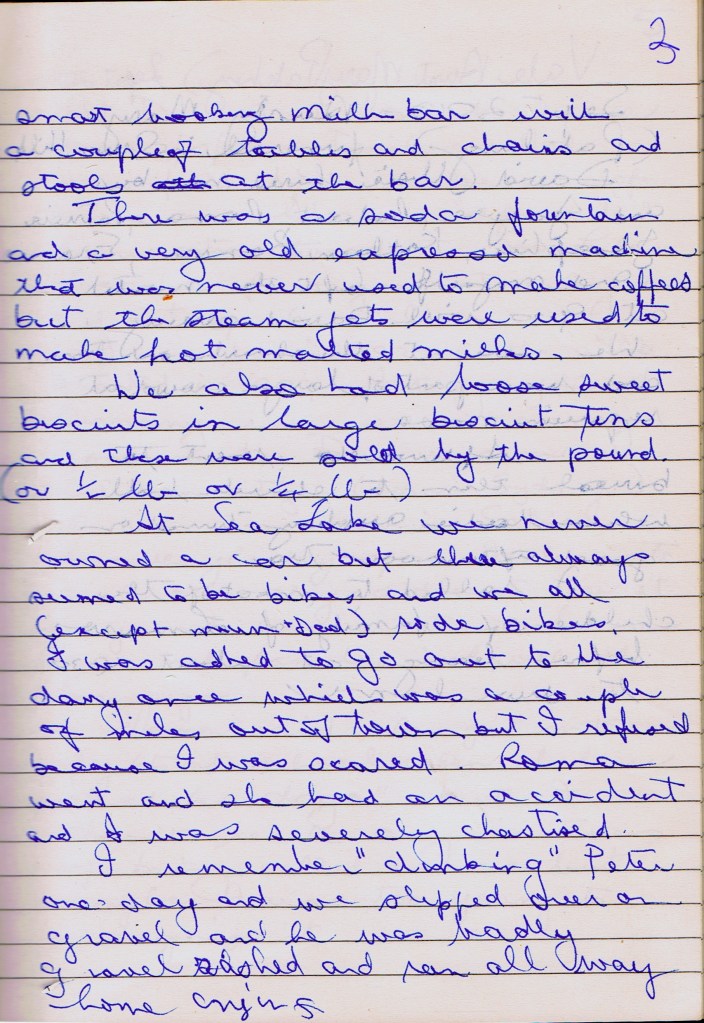 3
smart looking milk bar with
a couple of tables and chairs and
stools at the bar.
There was a soda fountain
and a very old expresso machine
that was never used to make coffees
but the steam jets were used to
make hot malted milks.
We also had loose sweet
biscuits in large biscuit tins
and these were sold by the pound.
(or 1/2 lb or 1/4 lb)
At Sea Lake we never
owned a car but there always
seemed to be bikes and we all
(except mum + Dad) rode bikes.
I was asked to go out to the
dairy once which was a couple
of miles out of town but I refused
because I was scared. Roma
went and she had an accident
and I was severely chastised.
I remember "dinking" Peter
one day and we slipped over on
gravel and he was badly
gravel rashed and ran all way
home crying